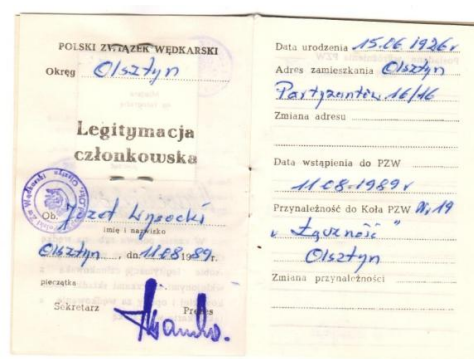 POLSKI ZWIĄZEK WĘDKARSKI
Okręg Olsztyn
Legitymacja
członkowska
Ob. Józef Lipocki
imię i nazwisko
Olsztyn, dn. 11.08.1989.
pieczątka
Sekretarz Prezes
Data urodzenia 15.06 1926 r
Adres zamieszkania Olsztyn
Partyzantów 16/16
Zmiana adresu
Data wstąpienia do PZW
11.08.1989 r
Przynależność do Koła PZW Nr 19
"Łączność"
Olsztyn
Zmiana przynależności